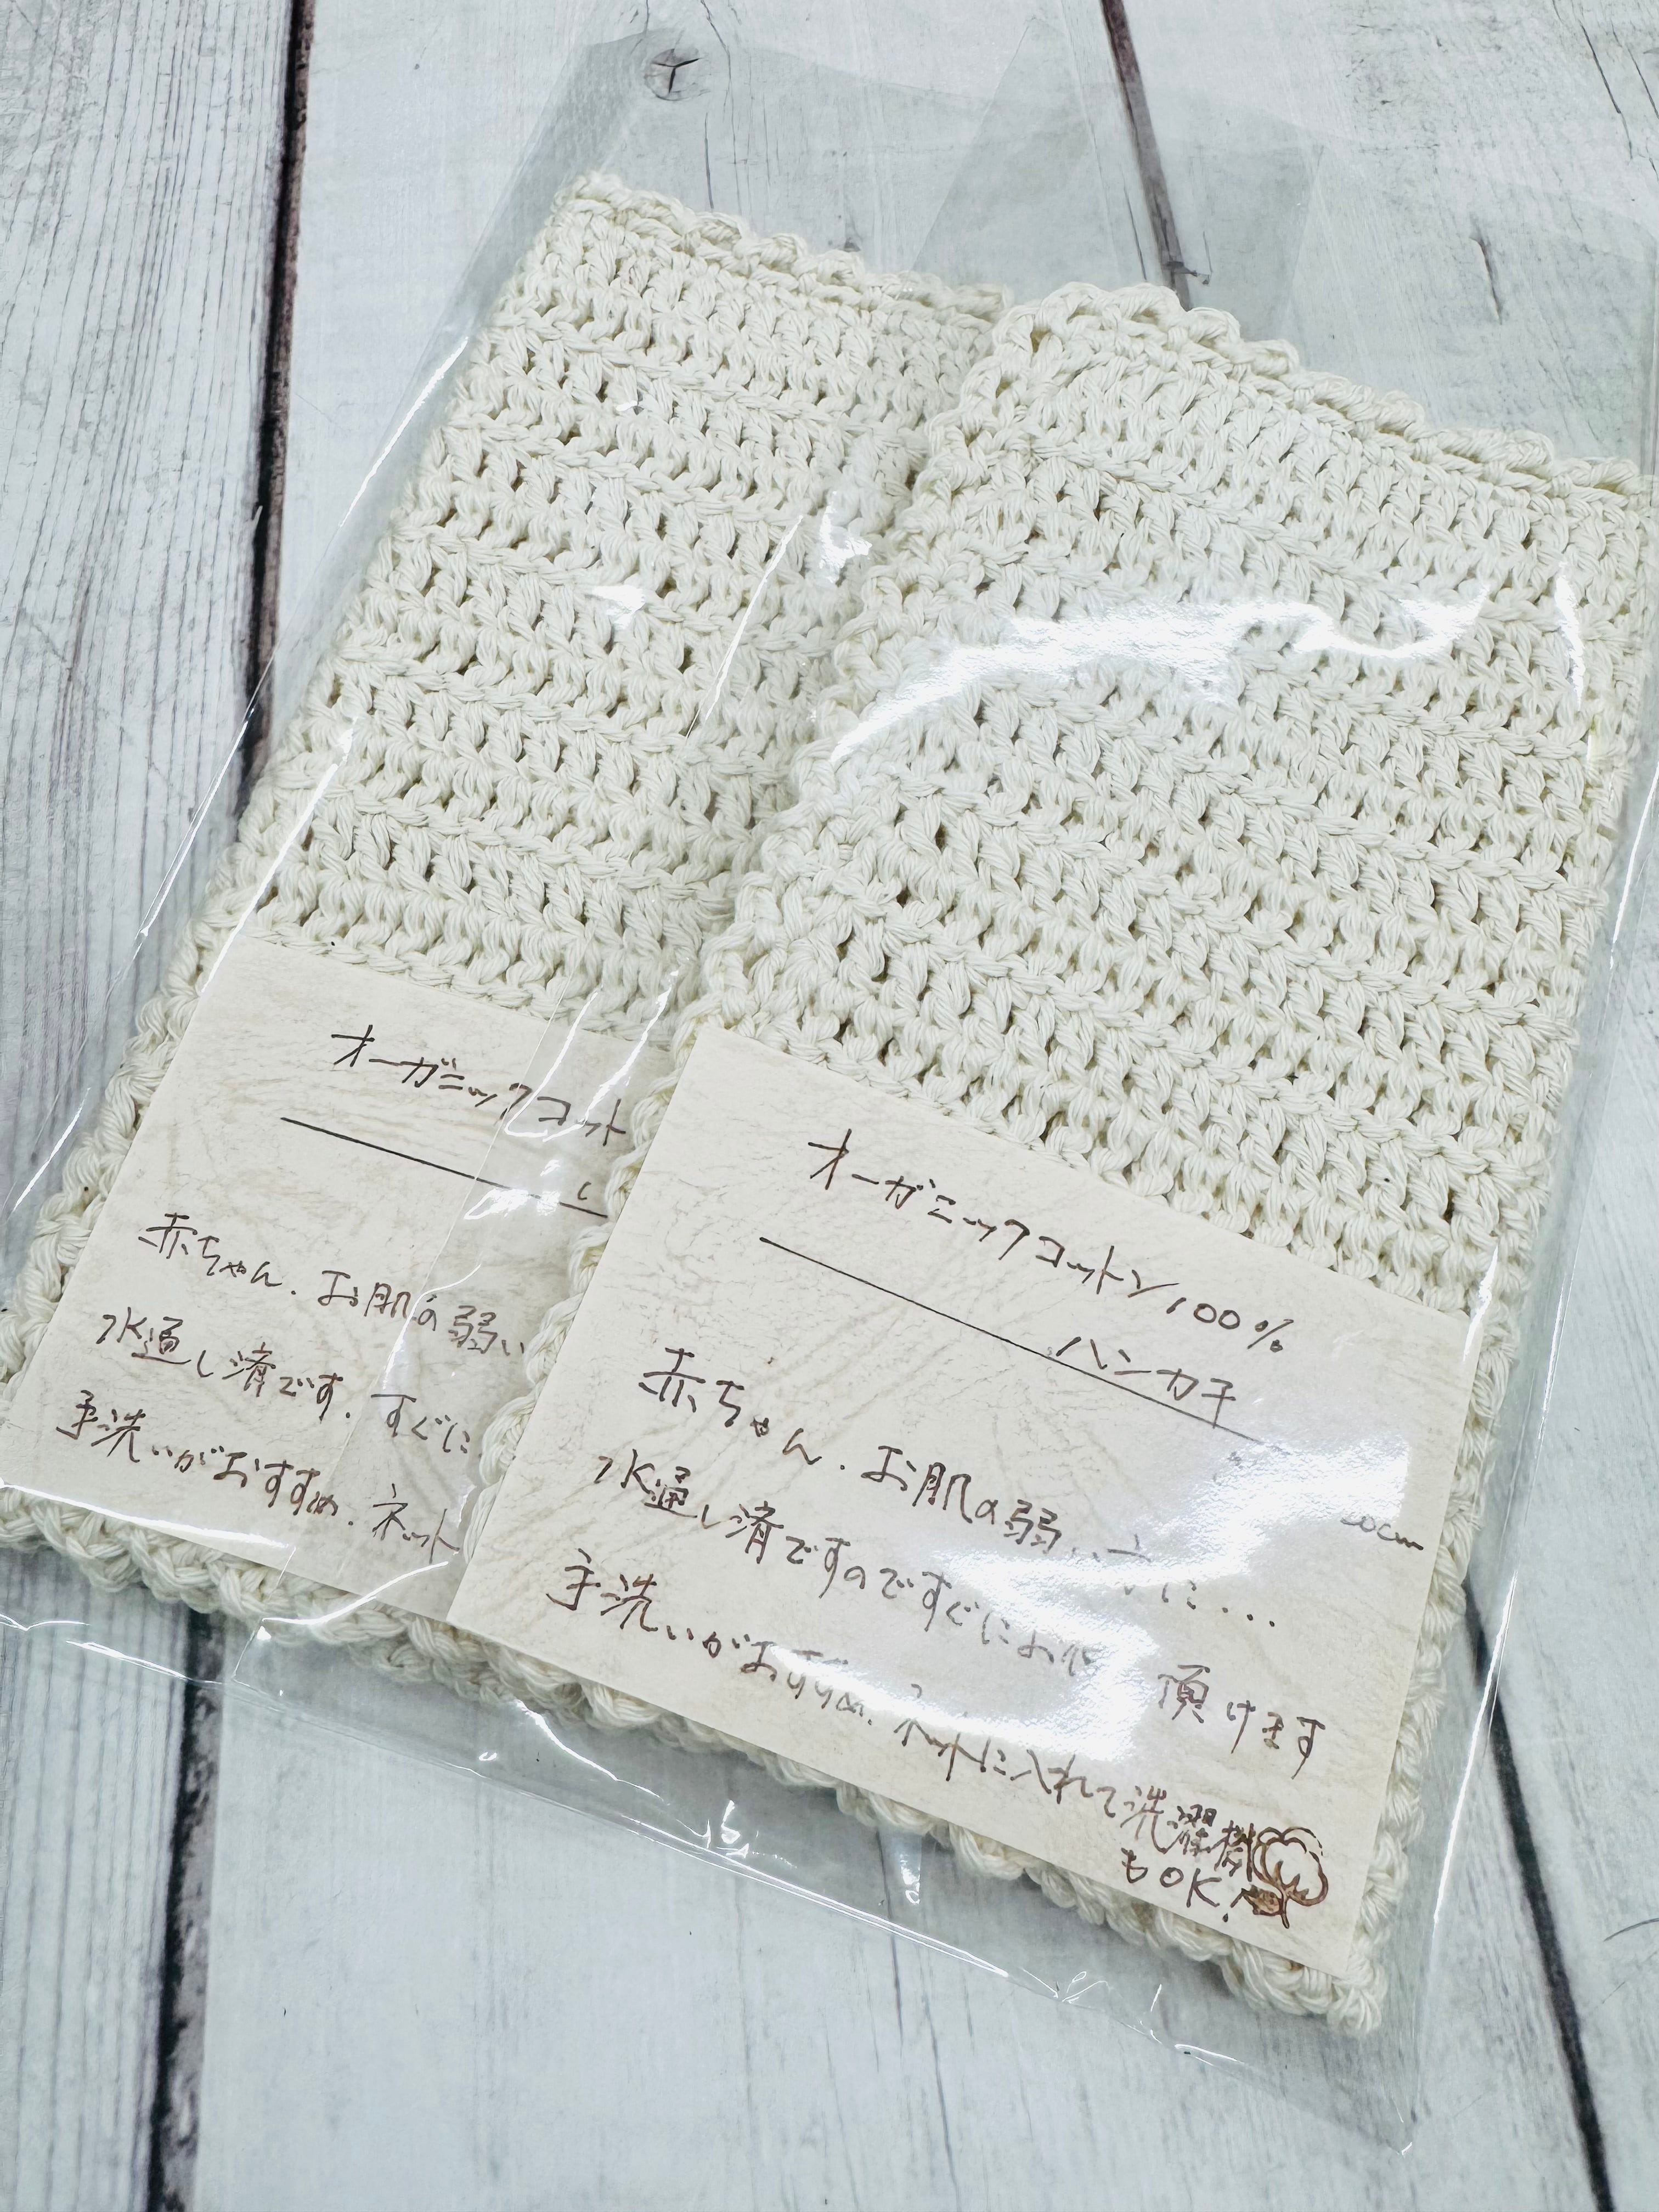 オーガニックコット
赤ちゃん.お肌の弱い
水通し済です.すぐに
手洗いがおすすめ.ネット
オーガニックコットン100%
ハンカチ
20cm
赤ちゃん.お肌の弱い方に...
水通し済ですのですぐにお使 頂けます
手洗いがおすすめ.ネットに入れて洗濯樹
もOK!